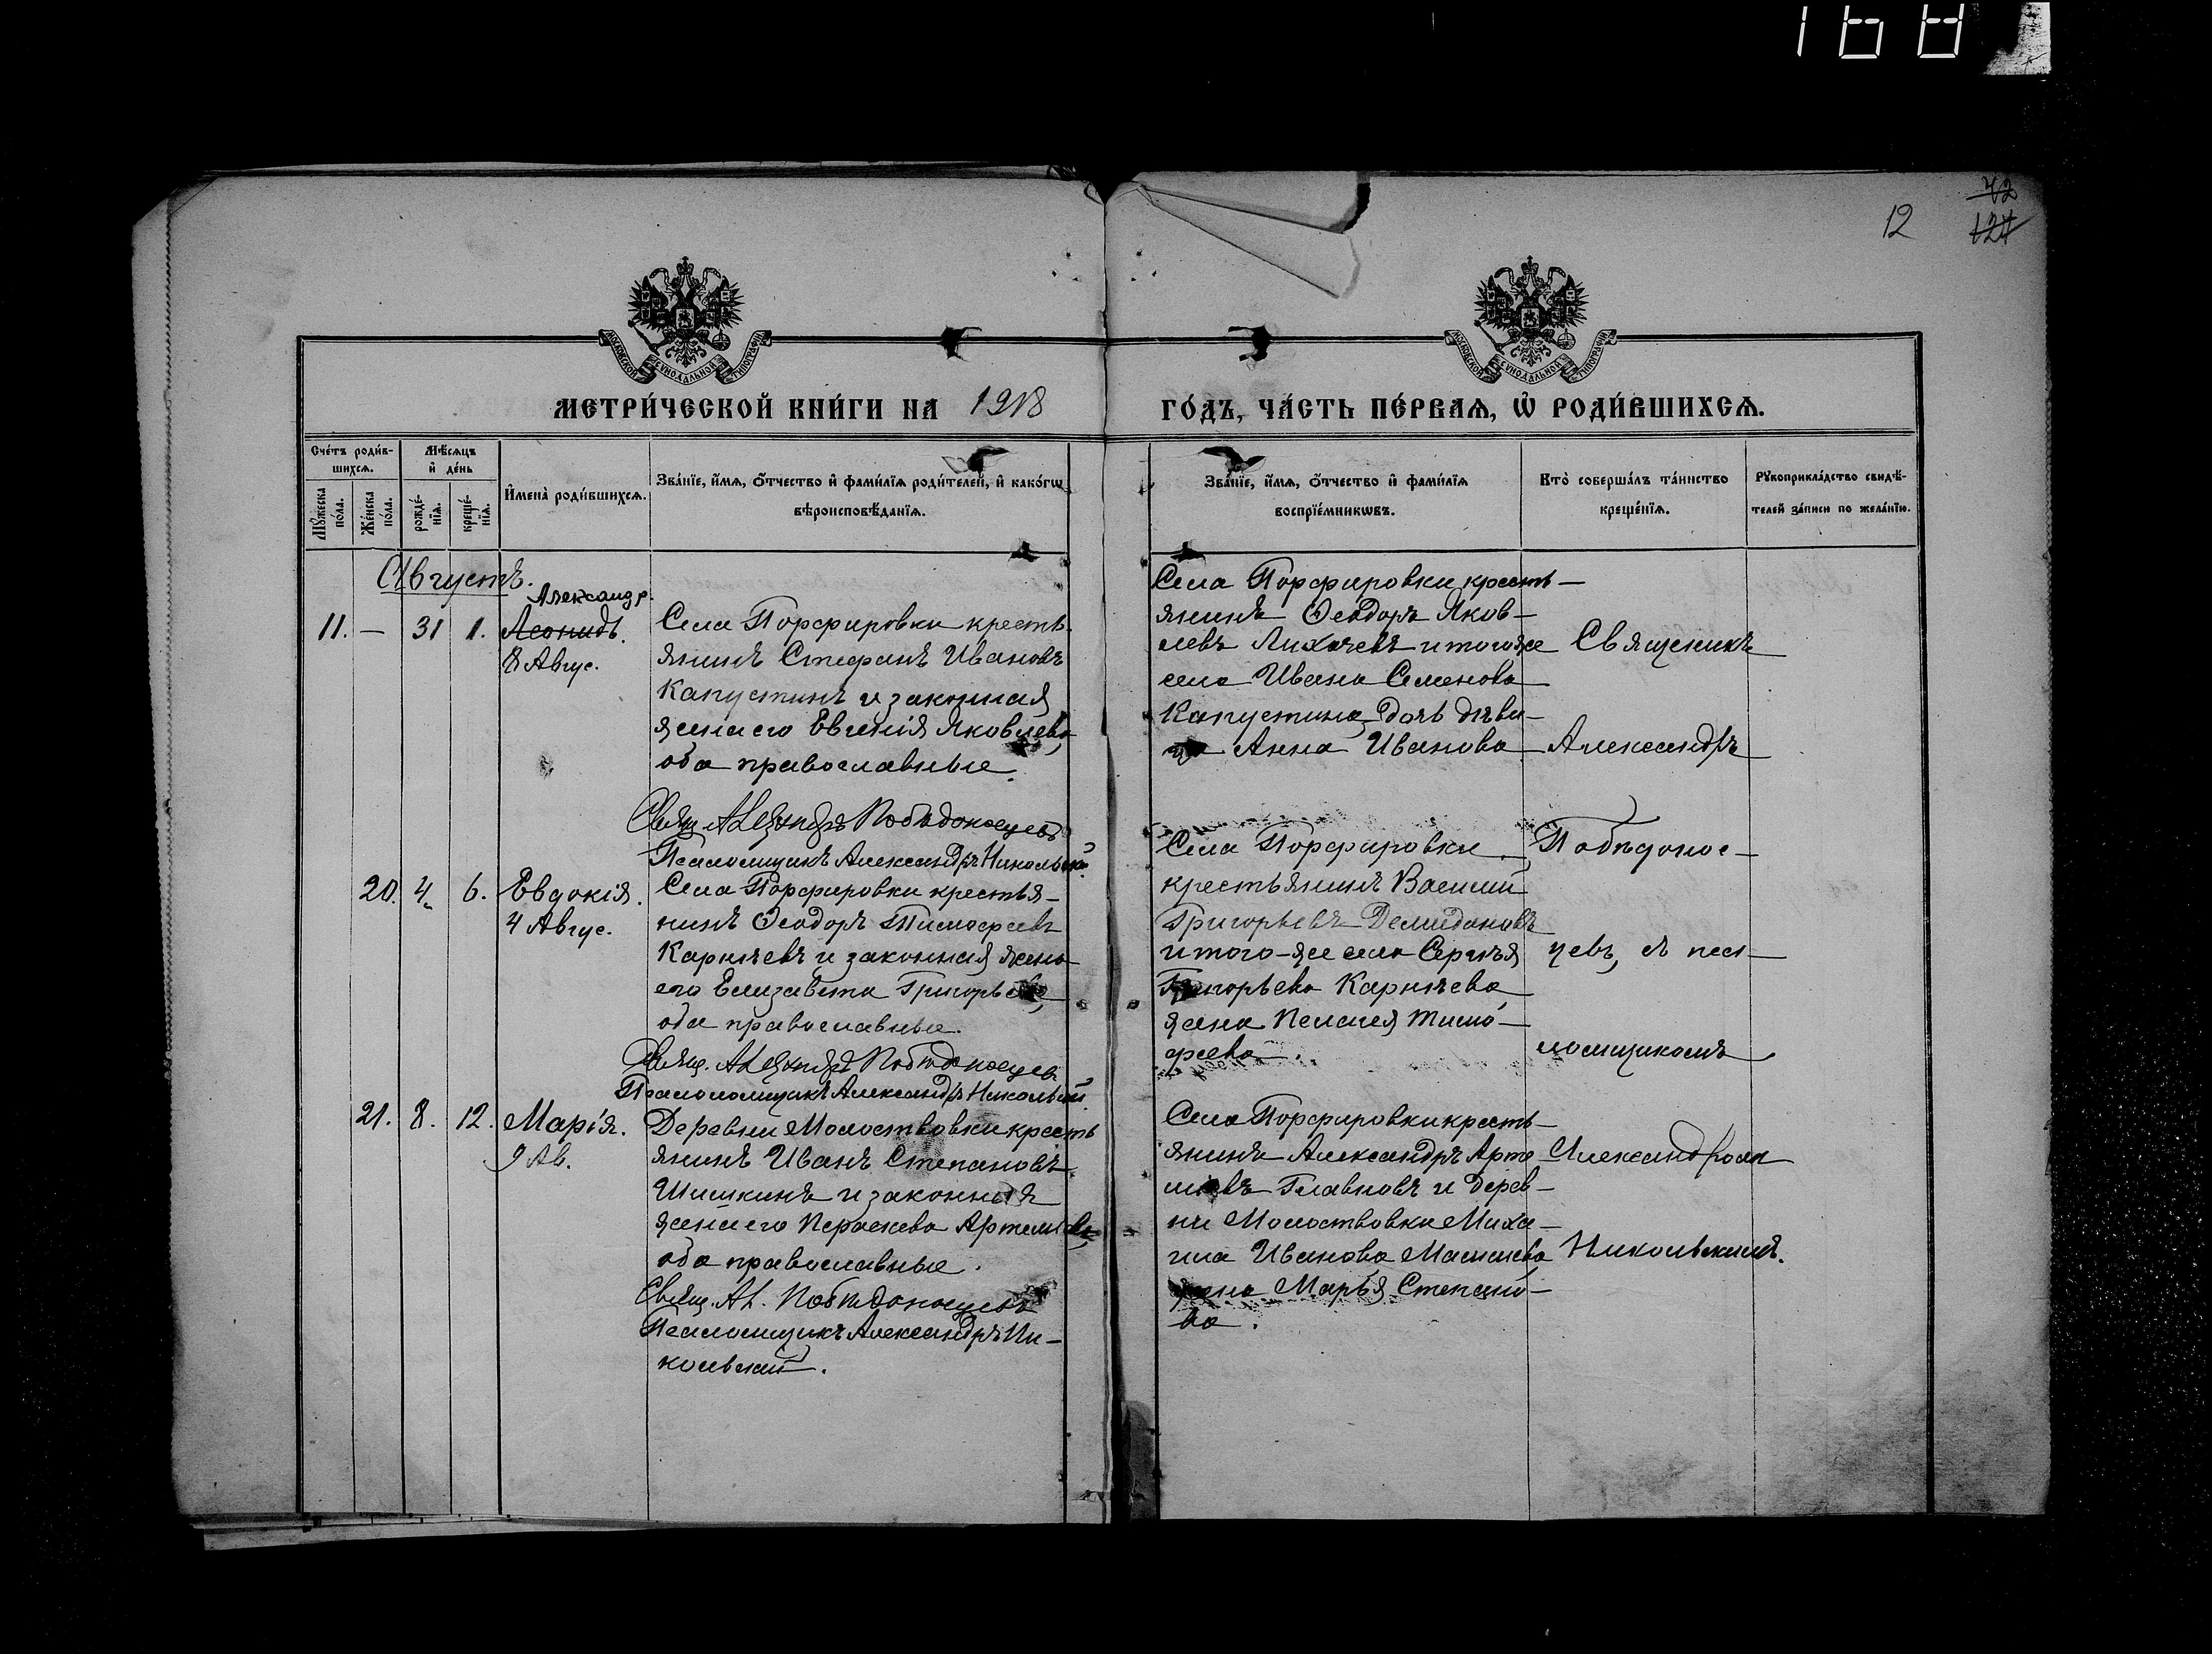 168
42
124
12
МОСКОВСКОЙ СѴНОДАЛЬНОЙ ТИПОГРАФІИ
МОСКОВСКОЙ СѴНОДАЛЬНОЙ ТИПОГРАФІИ
МЕТРИ́ЧЕСКОЙ КНИ́ГИ НА 1918
ГО́ДЪ, ЧА́СТЬ ПЕ́РВАѦ, Ѡ҆ РОДИ́ВШИХСѦ.
Сче́тъ роди́в-
шихсѧ.
Мѣ́сѧцъ
и҆ де́нь
Мꙋ́жеска
по́ла.
Же́нска
по́ла.
рожде́-
нїѧ.
креще́-
нїѧ.
И҆мена̀ роди́вшихсѧ.
Зва́нїе, и҆́мѧ, ѻ҆́тчество и҆ фами́лїѧ роди́телей, и҆ како́гѡ
вѣроисповѣ́данїѧ.
Зва́нїе, и҆́мѧ, ѻ҆́тчество и҆ фами́лїѧ
воспрїе́мникѡвъ.
Кто̀ соверша́лъ та́инство
креще́нїѧ.
Рꙋкоприкла́дство свидѣ́-
телей за́писи по жела́нїю.
Августъ.
Александр.
11. — 31 1. Леонидъ.
8 Авгус.
Села Порфировки кресть-
янинъ Стефанъ Ивановъ
Капустинъ и законная
жена его Евгенія Яковлева,
оба православные.
Свящ. Александръ Побѣдоносцевъ
Псаломщикъ Александръ Никольскій
Села Порфировки кресть-
янинъ Ѳеодоръ Яков-
левъ Лихачевъ и того же
села Ивана Семенова
Капустина дочь дѣви-
ца Анна Иванова
Священикъ
Александръ
20. 4. 6. Евдокія.
4 Авгус.
Села Порфировки крестья-
нинъ Ѳеодоръ Тимофеевъ
Карнѣевъ и законная жена
его Елизавета Григорьева,
оба православные.
Свящ. Александръ Побѣдоносцевъ
Псаломщикъ Александръ Никольскій
Села Порфировки
крестьянинъ Василій
Григорьевъ Демидоновъ
и того-же села Сергѣя
Григорьева Карнѣева
жена Пелагея Тимо-
феева.
Побѣдонос-
цевъ, съ пса-
ломщикомъ
21. 8. 12. Марія.
9 Ав.
Деревни Молоствовки кресть
янинъ Иванъ Степановъ
Шишкинъ и законная
жена его Параскева Артеміева,
оба православные.
Свящ. Ал. Побѣдоносцевъ
Псаломщикъ Александръ Ни-
кольскій.
Села Порфировки кресть-
янинъ Александръ Арте
мьевъ Главновъ и дерев-
ни Молоствовки Миха-
ила Иванова
жена Марья Степано-
ва.
Александромъ
Никольскимъ.